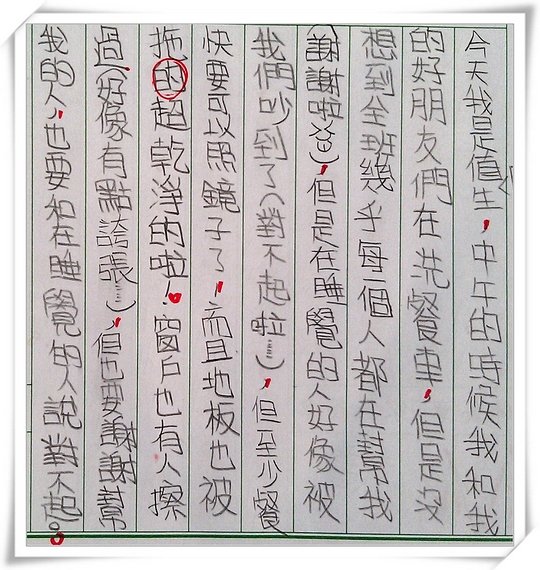 今天我是值生，中午的時候我和我
的好朋友們在洗餐車，但是沒
想到全班幾乎每一個人都在幫我
(謝謝啦)，但是在睡覺的人好像被
我們吵到了(對不起啦……)，但至少餐
快要可以照鏡子了，而且地板也被
拖的超乾淨的啦！窗戶也有人擦
過(好像有點誇張……)，但也要謝謝幫
我的人，也要和在睡覺的人說對不起。